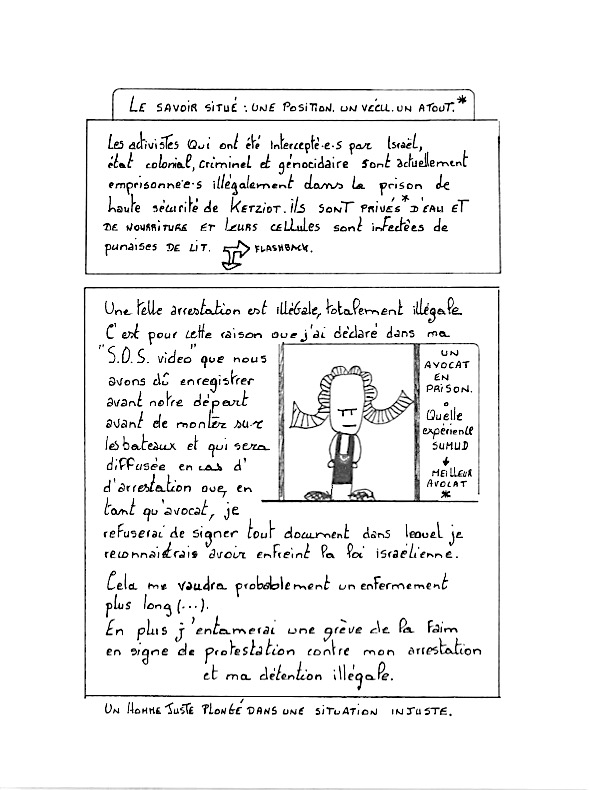 LE SAVOIR SITUÉ : UNE POSITION. UN VÉCU. UN ATOUT.*
Les activistes Qui ont été intercepté·e·s par Israël,
état colonial, criminel et génocidaire sont actuellement
emprisonné·e·s illégalement dans la prison de
haute sécurité de KETZIOT. ILS SONT PRIVÉS* D'EAU ET
DE NOURRITURE ET LEURS CELLULES sont infectées de
punaises DE LIT. FLASHBACK.
Une telle arrestation est illégale, totalement illégale
C'est pour cette raison que j'ai déclaré dans ma
"S.O.S. video" que nous
avons dû enregistrer
avant notre départ
avant de monter sur
les bateaux et qui sera
diffusée en cas d'
d'arrestation que, en
tant qu'avocat, je
refuserai de signer tout document dans lequel je
reconnaitrais avoir enfreint la loi israélienne.
UN
AVOCAT
EN
PRISON.
Quelle
expérience
SUMUD
MEILLEUR
AVOCAT
*
Cela me vaudra probablement un enfermement
plus long (...).
En plus j'entamerai une grève de la faim
en signe de protestation contre mon arrestation
et ma détention illégale.
UN HOMME JUSTE PLONGÉ DANS UNE SITUATION INJUSTE.